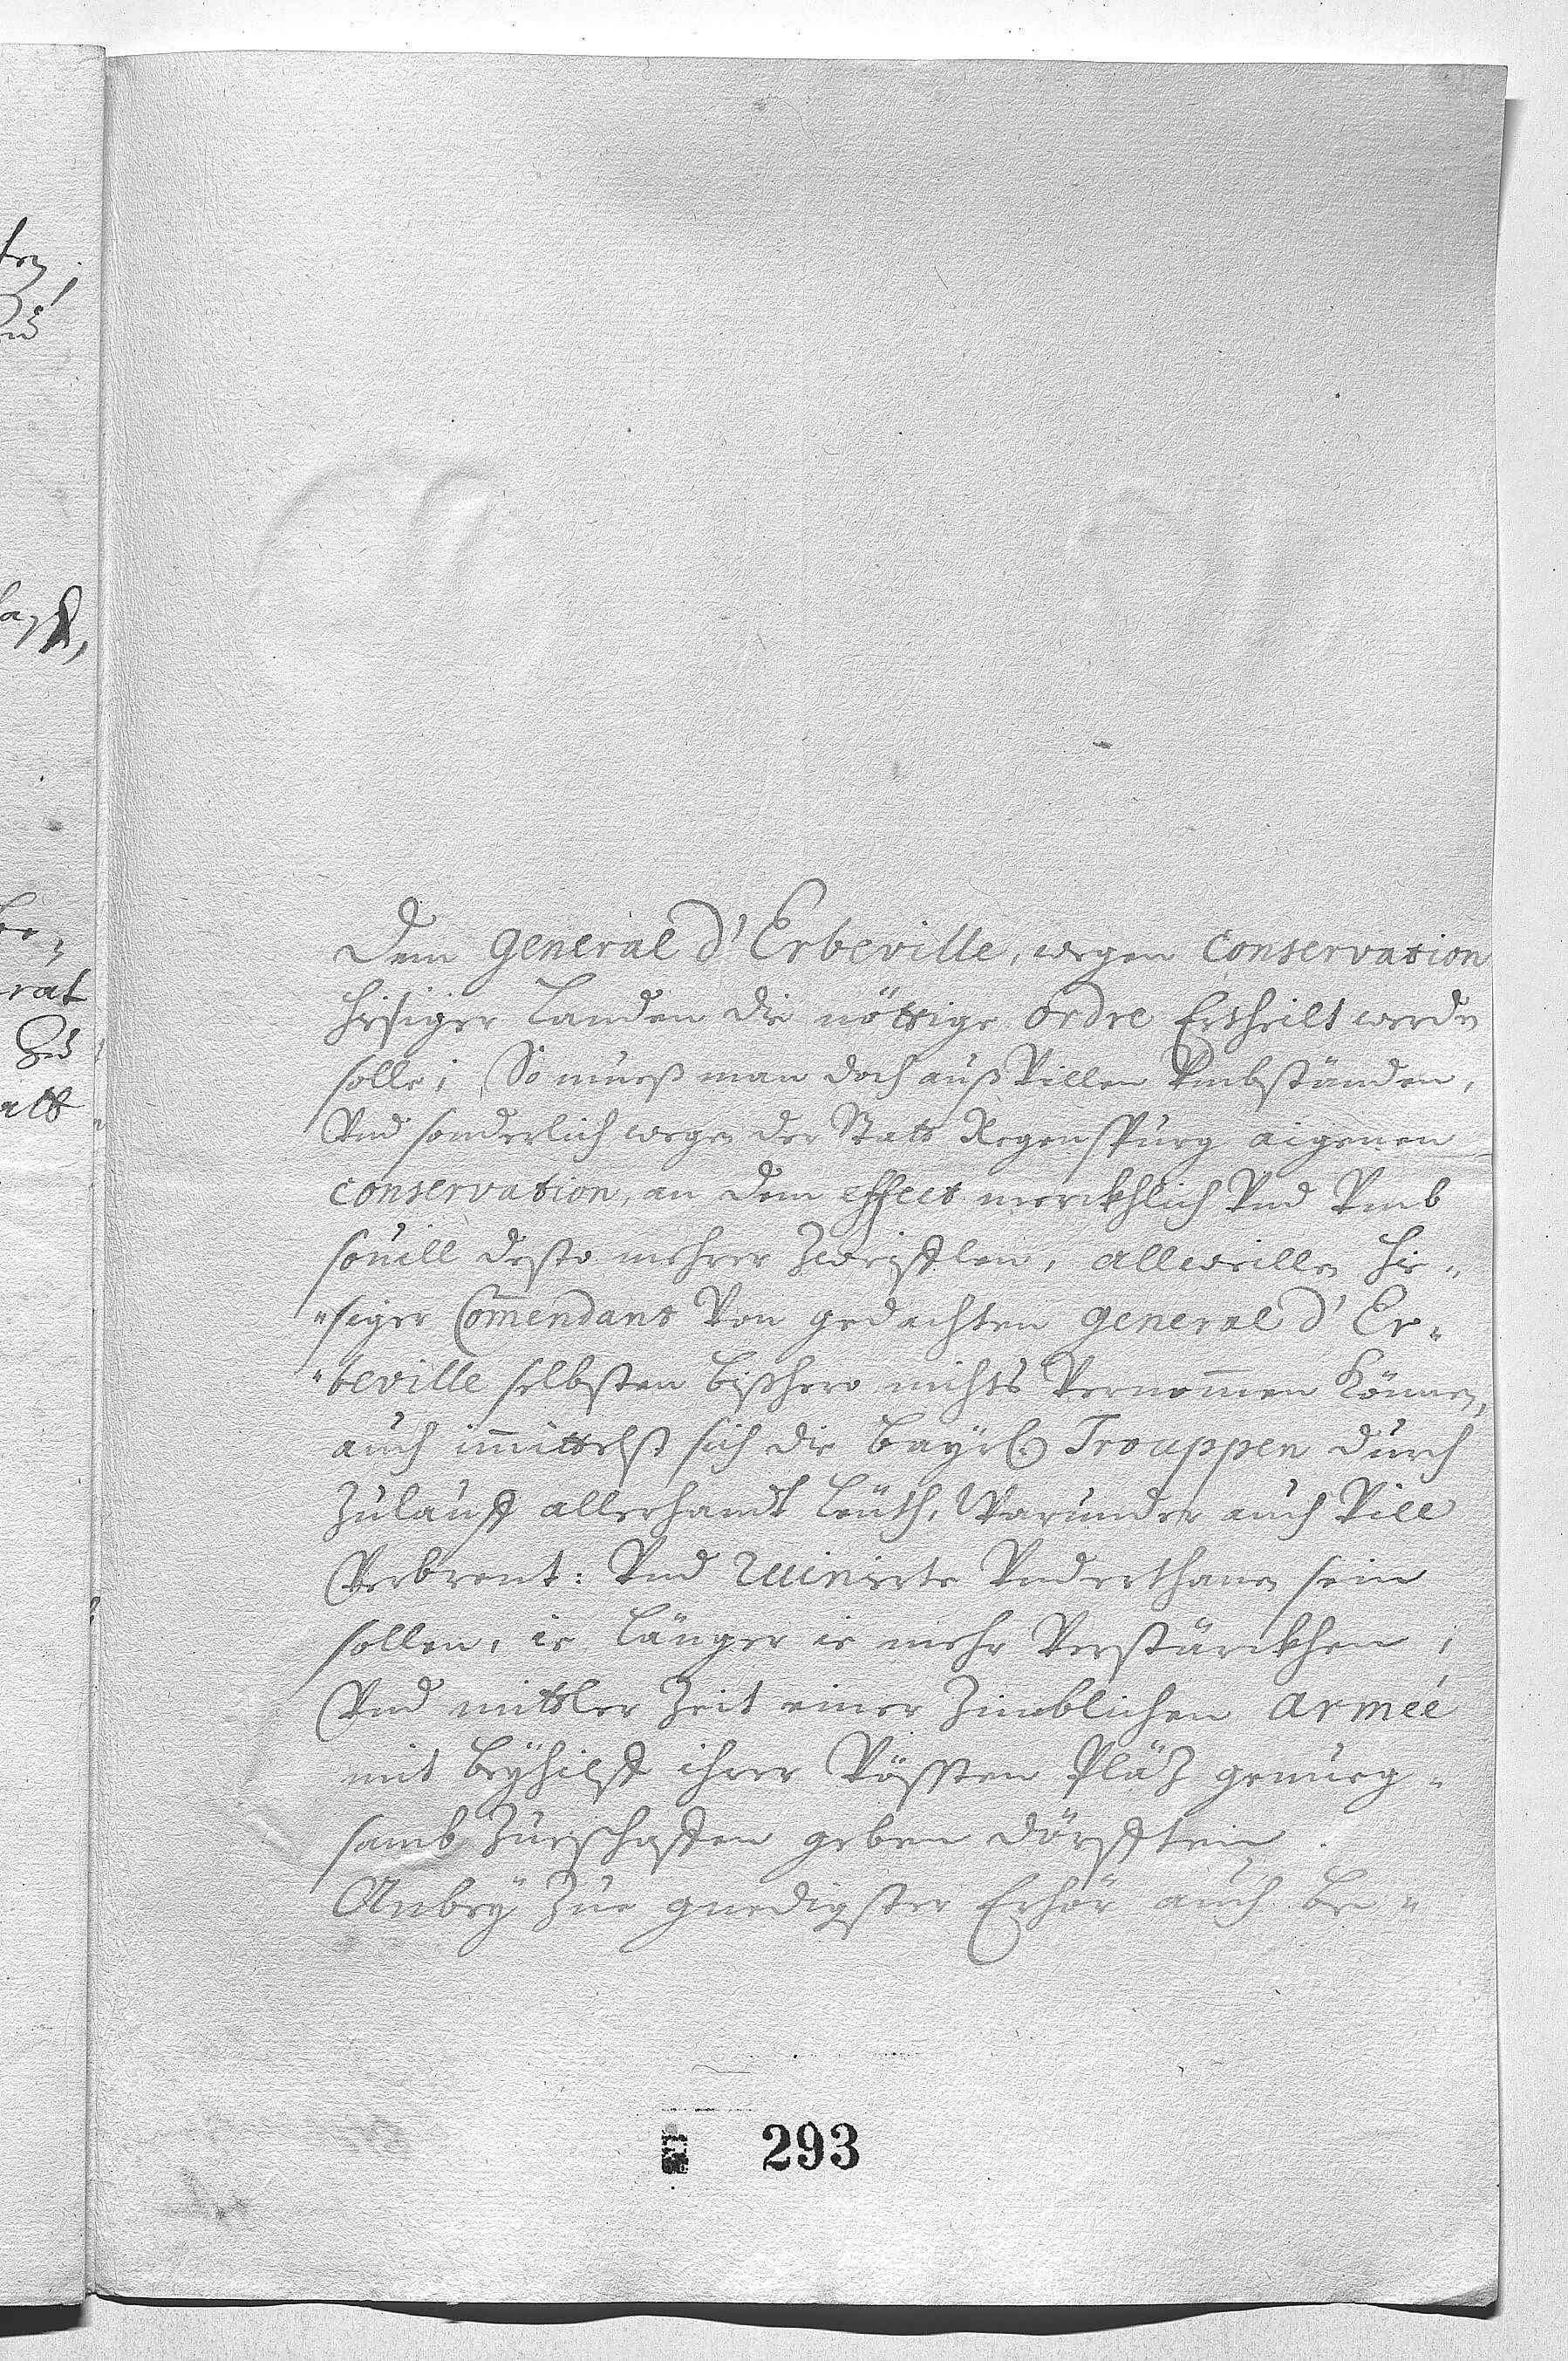 Dem General d'Erbeville, wegen conservation
hisiger Landen die nöttige ordre Ertheilt werden
solle; So mueß man doch auß Villen Vmbständen,
Vnd sonderlich wegen der Statt Regenspurg aigenen
conservation, an dem effect merckhlich Vnd Vmb
souill desto mehrer Zweifflen, allweillen hie-
siger Commendant Von gedachten General d'Er-
beville selbsten bißhero nichts Vernommen Können,
auch immittelst sich die bayrl: Trouppen durch
Zulauff allerhandt leüth, Warunder auch Vill
Verbrent: Vnd ruinirte Vnderthanen sein
sollen, ie länger ie mehr Verstärckhen;
Vnd mittler Zeit einer Zimblichen Armée
mit beÿhilff ihrer Vössten Pläz genueg-
samb Zueschaffen geben dörfften.
Anbeÿ Zue gnedigster Erhör auch be-
293